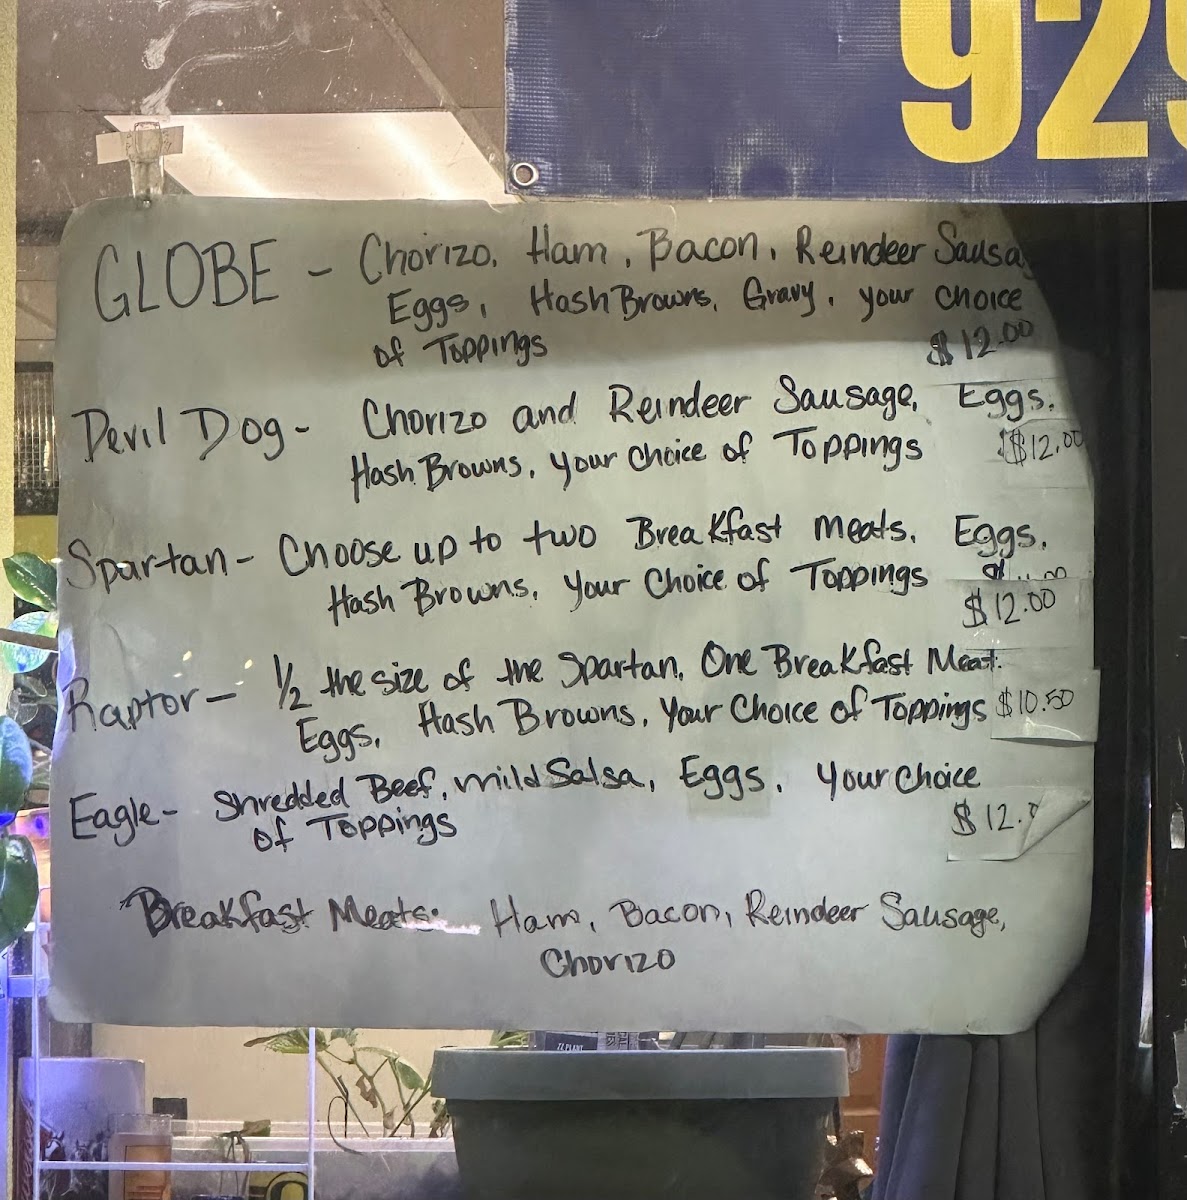 929
GLOBE - Chorizo, Ham, Bacon, Reindeer Sausa
Eggs, Hash Browns, Gravy, your choice
of Toppings $12.00
Devil Dog- Chorizo and Reindeer Sausage, Eggs,
Hash Browns, your choice of Toppings $12.00
Spartan- Choose up to two Breakfast meats, Eggs,
Hash Browns, Your Choice of Toppings
$12.00
Raptor- 1/2 the size of the Spartan, One Breakfast Meat.
Eggs, Hash Browns, Your Choice of Toppings $10.50
Eagle- Shredded Beef, mild Salsa, Eggs, your choice
of Toppings $12.0
Breakfast Meats: Ham, Bacon, Reindeer Sausage,
Chorizo
ZZ PLANT